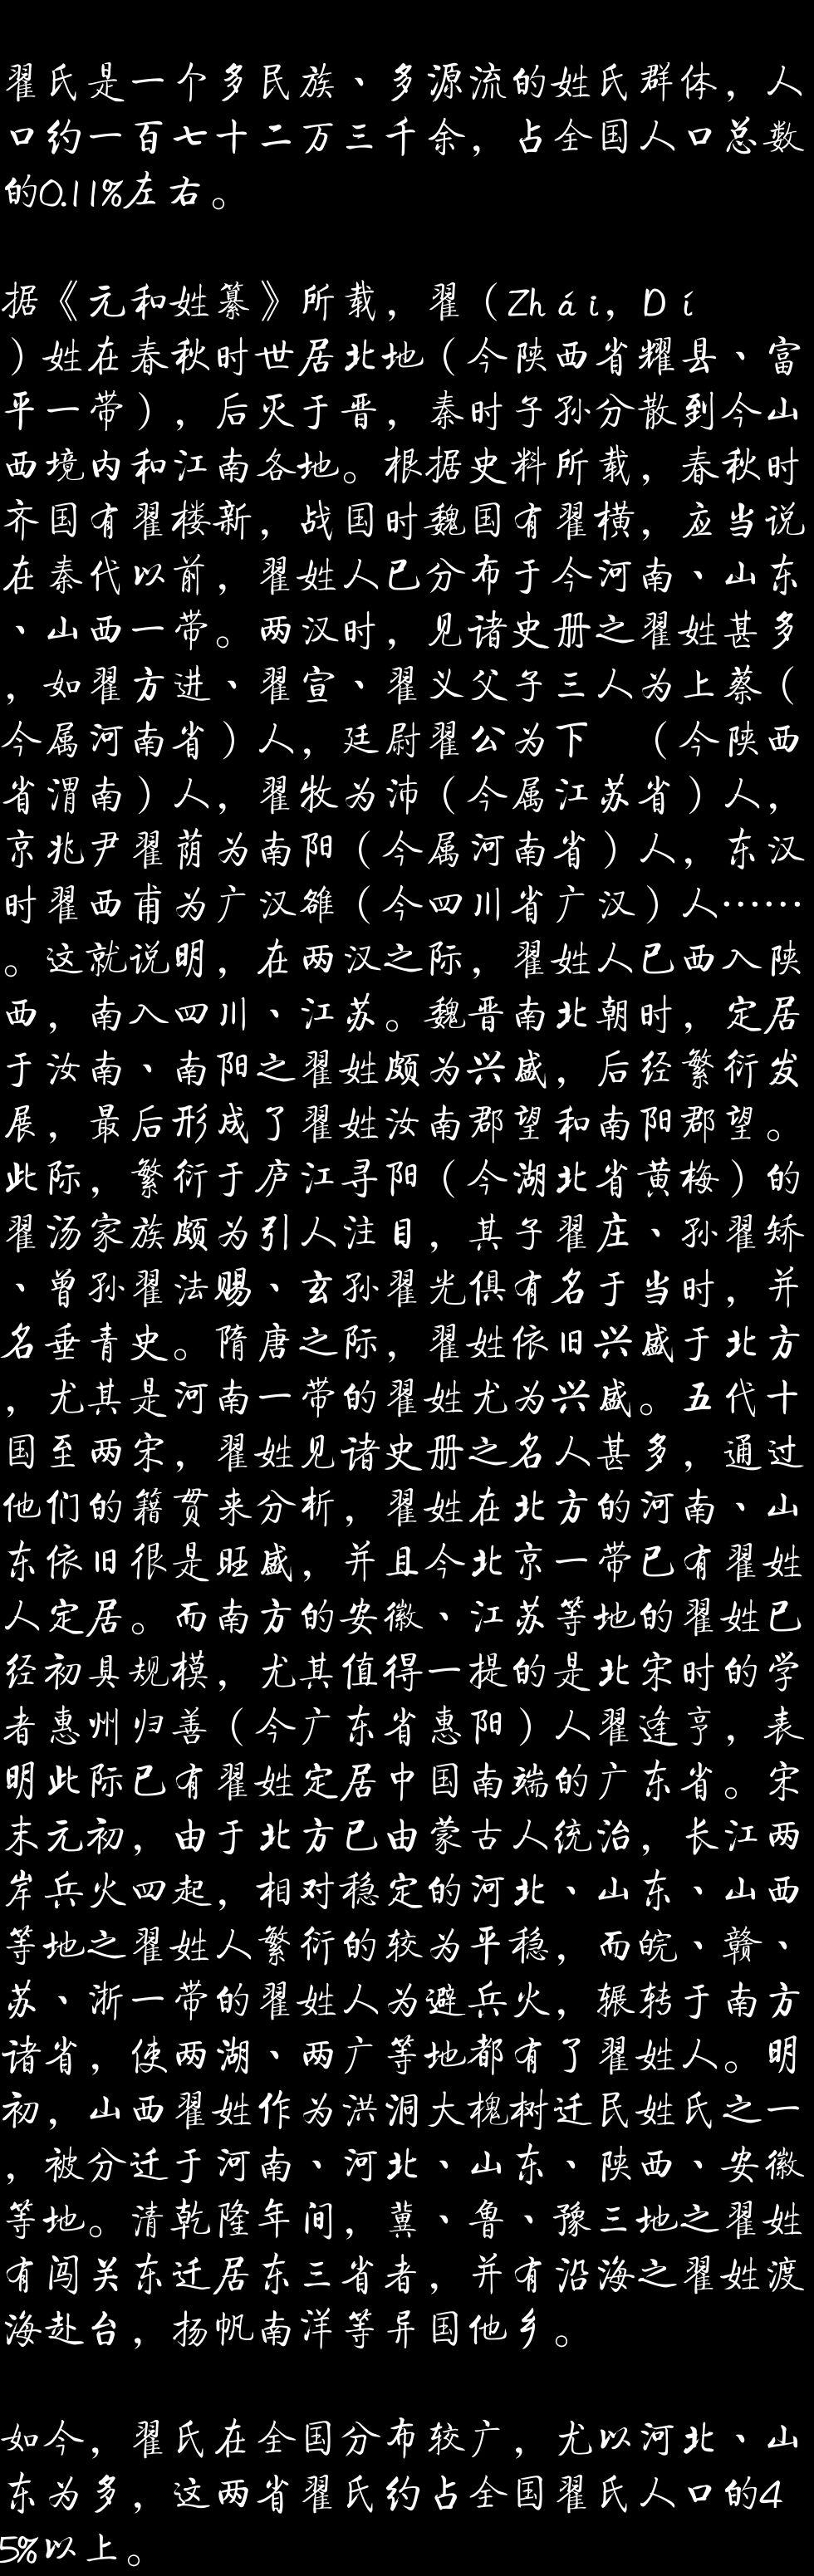 翟氏是一个多民族、多源流的姓氏群体，人
口约一百七十二万三千余，占全国人口总数
的0.11%左右。
据《元和姓纂》所载，翟（Zhái，Dí
）姓在春秋时世居北地（今陕西省耀县、富
平一带），后灭于晋，秦时子孙分散到今山
西境内和江南各地。根据史料所载，春秋时
齐国有翟楼新，战国时魏国有翟横，应当说
在秦代以前，翟姓人已分布于今河南、山东
、山西一带。两汉时，见诸史册之翟姓甚多
，如翟方进、翟宣、翟义父子三人为上蔡（
今属河南省）人，廷尉翟公为下　（今陕西
省渭南）人，翟牧为沛（今属江苏省）人，
京兆尹翟荫为南阳（今属河南省）人，东汉
时翟酉甫为广汉雒（今四川省广汉）人……
。这就说明，在两汉之际，翟姓人已西入陕
西，南入四川、江苏。魏晋南北朝时，定居
于汝南、南阳之翟姓颇为兴盛，后经繁衍发
展，最后形成了翟姓汝南郡望和南阳郡望。
此际，繁衍于庐江寻阳（今湖北省黄梅）的
翟汤家族颇为引人注目，其子翟庄、孙翟矫
、曾孙翟法赐、玄孙翟光俱有名于当时，并
名垂青史。隋唐之际，翟姓依旧兴盛于北方
，尤其是河南一带的翟姓尤为兴盛。五代十
国至两宋，翟姓见诸史册之名人甚多，通过
他们的籍贯来分析，翟姓在北方的河南、山
东依旧很是旺盛，并且今北京一带已有翟姓
人定居。而南方的安徽、江苏等地的翟姓已
经初具规模，尤其值得一提的是北宋时的学
者惠州归善（今广东省惠阳）人翟逢亨，表
明此际已有翟姓定居中国南端的广东省。宋
末元初，由于北方已由蒙古人统治，长江两
岸兵火四起，相对稳定的河北、山东、山西
等地之翟姓人繁衍的较为平稳，而皖、赣、
苏、浙一带的翟姓人为避兵火，辗转于南方
诸省，使两湖、两广等地都有了翟姓人。明
初，山西翟姓作为洪洞大槐树迁民姓氏之一
，被分迁于河南、河北、山东、陕西、安徽
等地。清乾隆年间，冀、鲁、豫三地之翟姓
有闯关东迁居东三省者，并有沿海之翟姓渡
海赴台，扬帆南洋等异国他乡。
如今，翟氏在全国分布较广，尤以河北、山
东为多，这两省翟氏约占全国翟氏人口的4
5%以上。